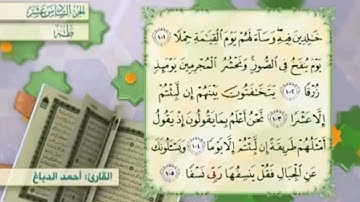 الجزء السادس عشر
طه
خَٰلِدِينَ فِيهِ وَسَآءَ لَهُمْ يَوْمَ ٱلْقِيَٰمَةِ حِمْلًا ١٠١
يَوْمَ يُنفَخُ فِى ٱلصُّورِ وَنَحْشُرُ ٱلْمُجْرِمِينَ يَوْمَئِذٍ
زُرْقًا ١٠٢ يَتَخَٰفَتُونَ بَيْنَهُمْ إِن لَّبِثْتُمْ
إِلَّا عَشْرًا ١٠٣ نَّحْنُ أَعْلَمُ بِمَا يَقُولُونَ إِذْ يَقُولُ
أَمْثَلُهُمْ طَرِيقَةً إِن لَّبِثْتُمْ إِلَّا يَوْمًا ١٠٤ وَيَسْـَٔلُونَكَ
عَنِ ٱلْجِبَالِ فَقُلْ يَنسِفُهَا رَبِّى نَسْفًا ١٠٥
القارئ: أحمد الدباغ